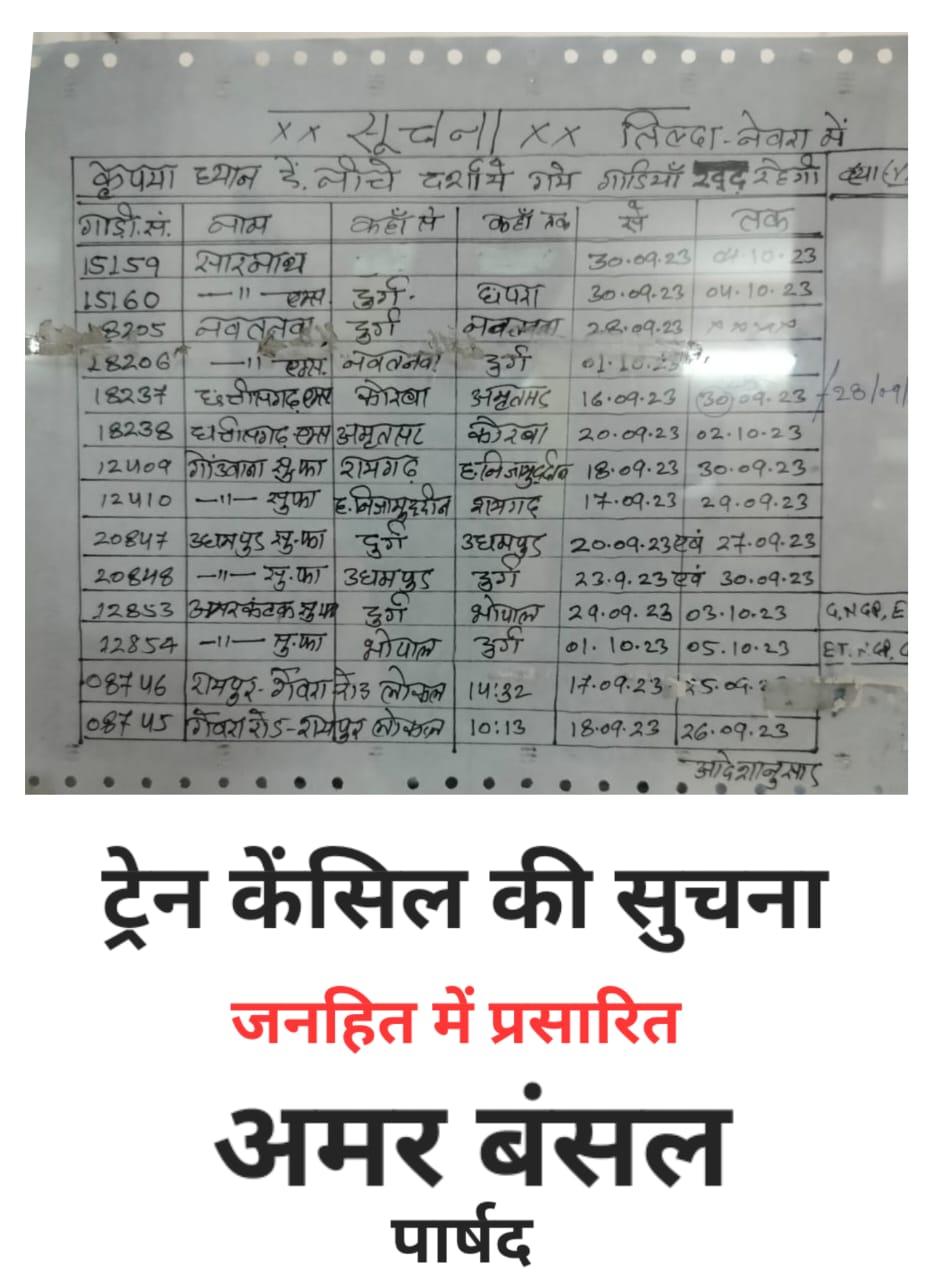 xx सूचना xx तिल्दा-नेवरा में
कृपया ध्यान दें. नीचे दर्शाये गये गाडियाँ रद्द रहेगी
गाड़ी.सं. नाम कहाँ से कहाँ तक से तक
15159 सारनाथ 30.09.23 04.10.23
15160 —"— एक्स दुर्ग. छपरा 30.09.23 04.10.23
18205 नवतनवा दुर्ग नवतनवा 28.09.23 xxxxx
18206 —"— एक्स. नवतनवा दुर्ग 01.10.23
18237 छत्तीसगढ़ एक्स कोरबा अमृतसर 16.09.23 30.09.23 28/09/
18238 छत्तीसगढ़ एक्स अमृतसर कोरबा 20.09.23 02.10.23
12409 गोंडवाना सु.फा रायगढ़ ह.निजामुद्दीन 18.09.23 30.09.23
12410 —"— सुफा ह.निजामुद्दीन रायगढ़ 17.09.23 29.09.23
20847 उधमपुर सु.फा दुर्ग उधमपुर 20.09.23 एवं 27.09.23
20848 —"— सु.फा उधमपुर दुर्ग 23.9.23 एवं 30.09.23
12853 अमरकंटक सुफा दुर्ग भोपाल 29.09.23 03.10.23 G,NGP, E
12854 —"— सु.फा भोपाल दुर्ग 01.10.23 05.10.23 ET.NGP,
08746 रायपुर-गेवरा रोड लोकल 14:32 17.09.23 25.09.2
08745 गेवरा रोड-रायपुर लोकल 10:13 18.09.23 26.09.23
आदेशानुसार
ट्रेन केंसिल की सुचना
जनहित में प्रसारित
अमर बंसल
पार्षद